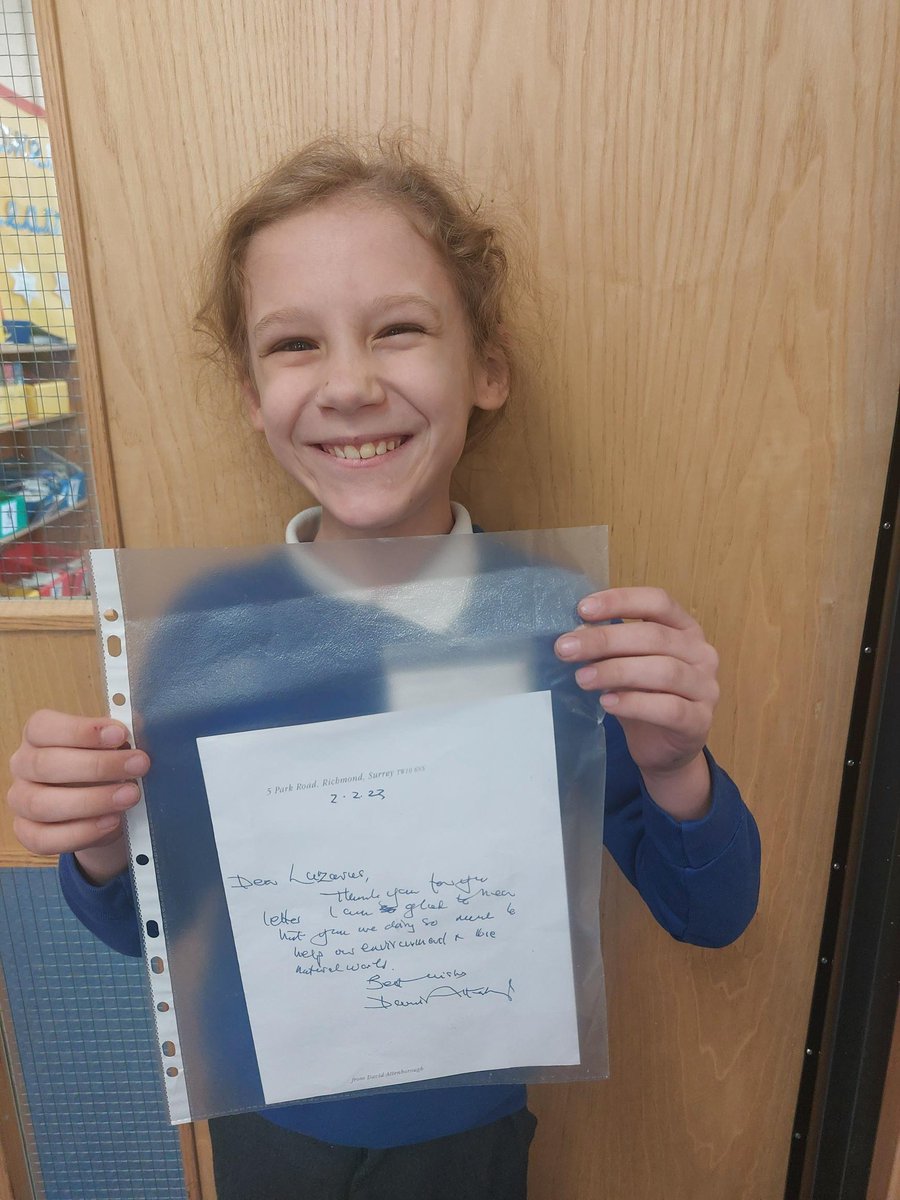 5 Park Road, Richmond, Surrey TW10 6NS
2.2.23
Dear Lazarus,
Thank you for your
letter I am glad to hear
that you are doing so much to
help our environment & the
natural world.
Best wishes
David Attenborough
from David Attenborough